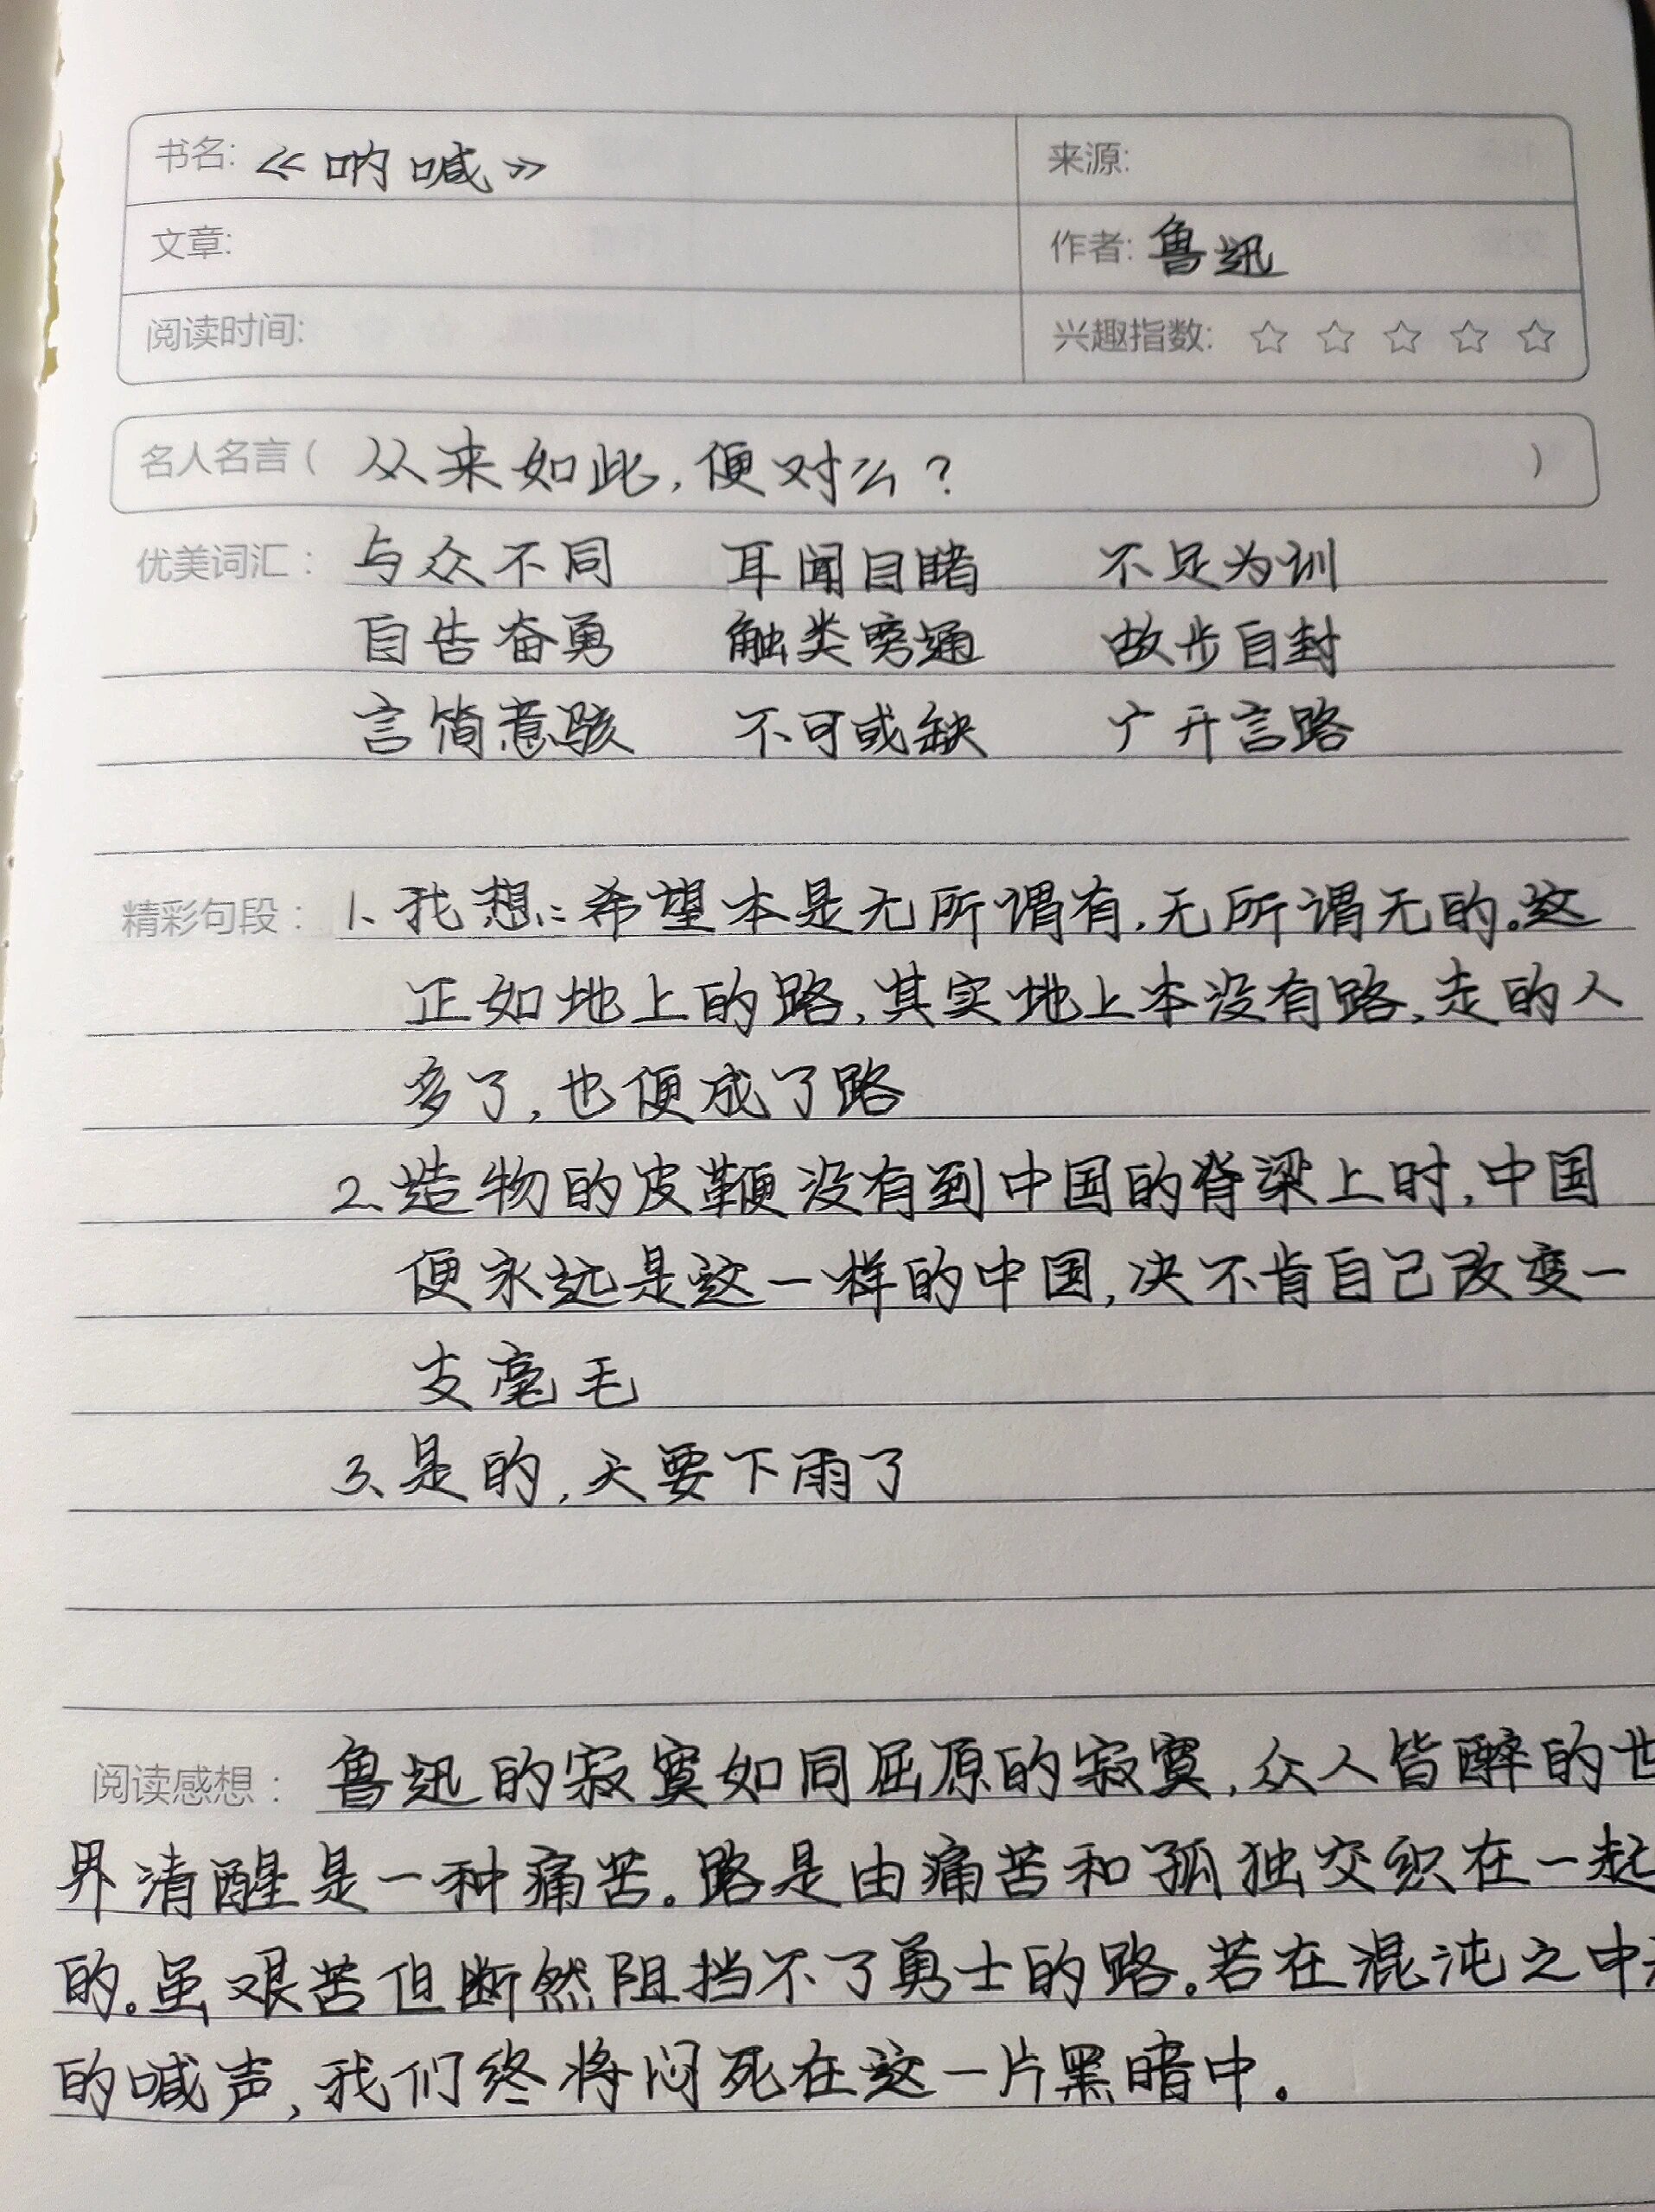 书名: 《呐喊》 来源:
文章: 作者: 鲁迅
阅读时间: 兴趣指数: ☆ ☆ ☆ ☆ ☆
名人名言( 从来如此,便对么? )
优美词汇: 与众不同 耳闻目睹 不足为训
自告奋勇 触类旁通 故步自封
言简意骇 不可或缺 广开言路
精彩句段: 1、我想:希望本是无所谓有,无所谓无的。这
正如地上的路,其实地上本没有路,走的人
多了,也便成了路
2、造物的皮鞭没有到中国的脊梁上时,中国
便永远是这一样的中国,决不肯自己改变一
支毫毛
3、是的,天要下雨了
阅读感想: 鲁迅的寂寞如同屈原的寂寞,众人皆醉的世
界清醒是一种痛苦。路是由痛苦和孤独交织在一起
的。虽艰苦但断然阻挡不了勇士的路。若在混沌之中
的喊声,我们终将闷死在这一片黑暗中。